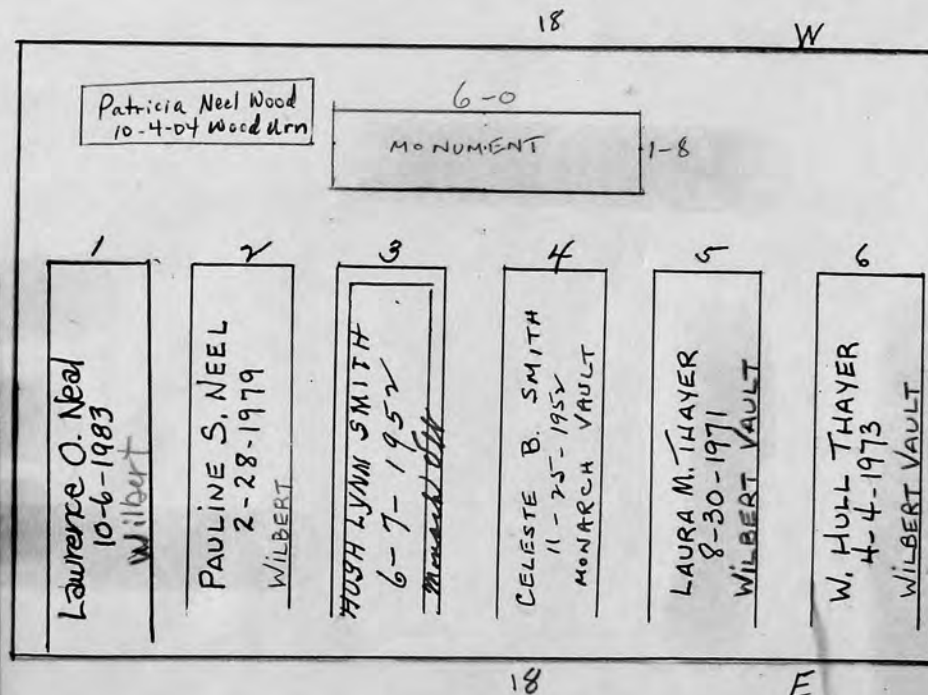 18 W
Patricia Neel Wood
10-4-04 Wood Urn
6-0
MONUMENT
1-8
1
Lawrence O. Neel
10-6-1983
Wilbert
2
PAULINE S. NEEL
2-28-1979
WILBERT
3
HUGH LYNN SMITH
6-7-1952
4
CELESTE B. SMITH
11-25-1952
MONARCH VAULT
5
LAURA M. THAYER
8-30-1971
WILBERT VAULT
6
W. HULL THAYER
4-4-1973
WILBERT VAULT
18 E